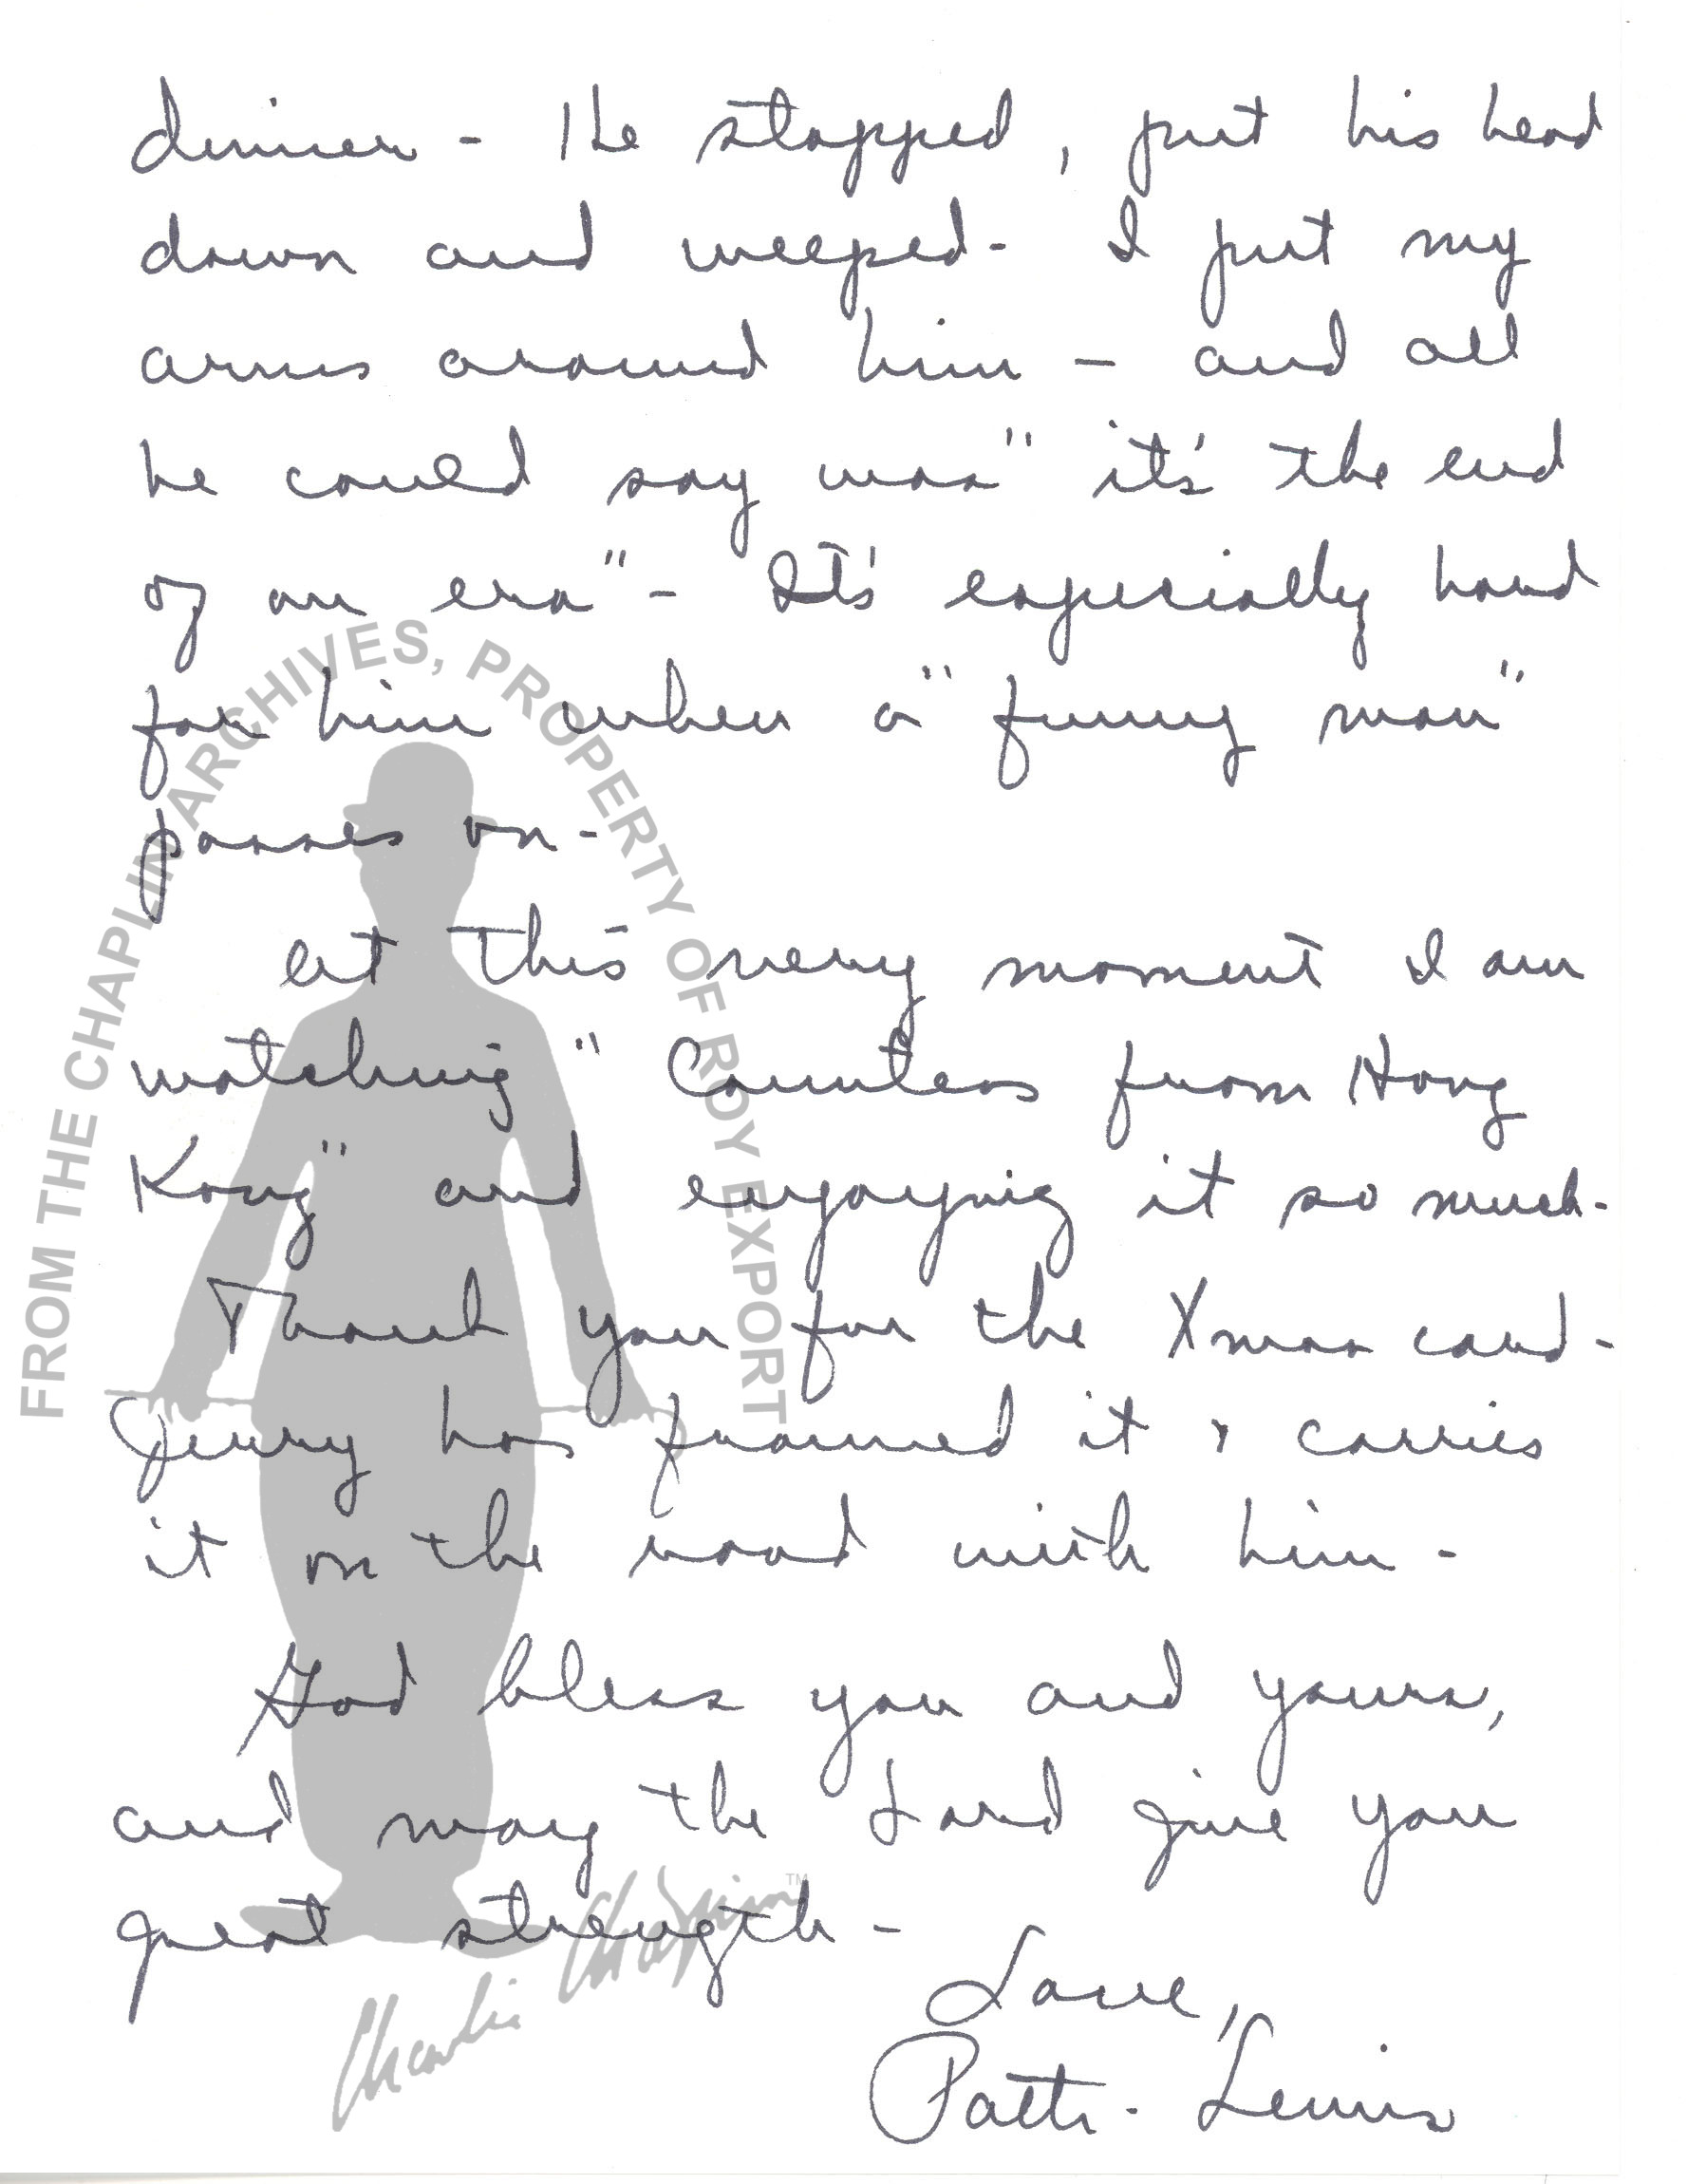 dinner - He stopped, put his head
down and weeped - I put my
arms around him - and all
he could say was " it's the end
of an era" - It's especially hard
for him when a "funny man"
passes on -
at this very moment I am
watching "Countess from Hong
Kong" and enjoying it so much -
Thank you for the Xmas card -
Jerry has framed it & carries
it on the road with him -
God bless you and yours,
and may the Lord give you
great strength -
Love,
Patti - Lewis
FROM THE CHAPLIN ARCHIVES, PROPERTY OF ROY EXPORT
Charlie Chaplin TM